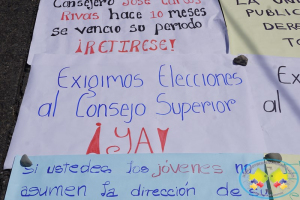 Consejero José Carlos
Rivas hace 10 meses
se venció su periodo
¡RETIRESE!
LA UN
PUBLIC
DERE
Exigimos Elecciones
al Consejo Superior
¡YA!
al
Si ustedes los jóvenes no
asumen la dirección de su